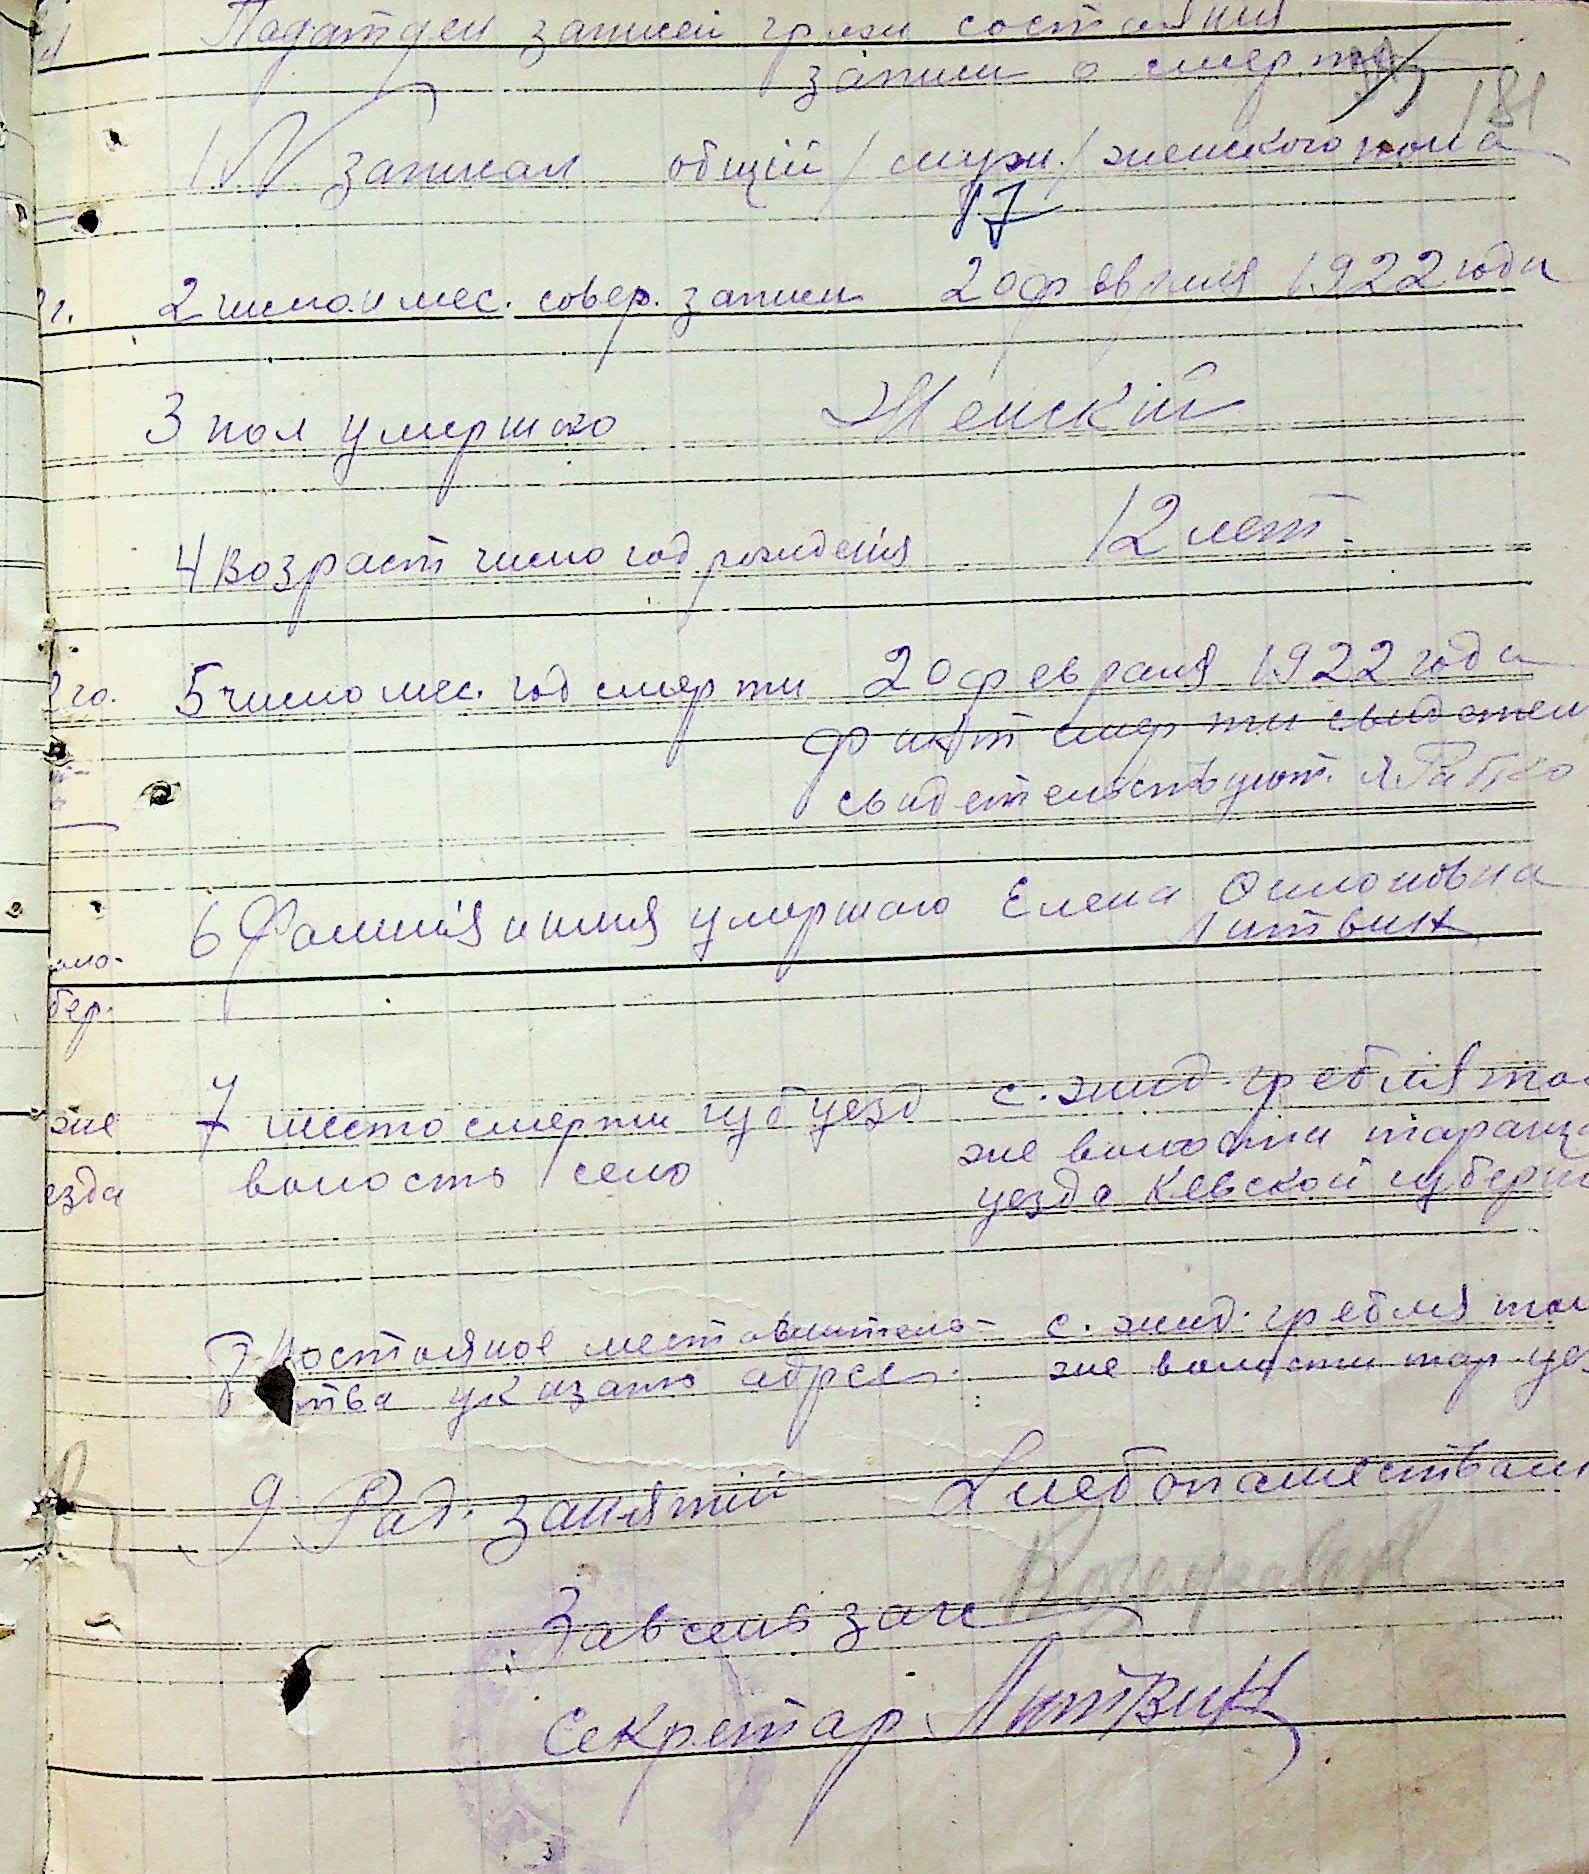 Податдел записей граж состояния
записи о смерти
181
1 N записи общій / муж. / женского пола
17
2 число и мес. совер. записи 20 февраля 1922 года
3 пол умершаго Женскій
4 Возраст число год рожденія 12 лет.
5 число мес. год смерти 20 февраля 1922 года
факт смерти свидетел
свидетельствуют.
6 Фамилія и имя умершаго Елена
Литвин
7 место смерти губ уезд с. жид. гребля той
волость село же волости таращ
уезда Кевской губерни
8 Постояное мест жительс- с. жид. гребля той
тва указать адрес. же волости тар уез
9 Род. занятій Хлебопашеством
Завсельзаге
Секретар Литвин
го.
бер.
же
езда